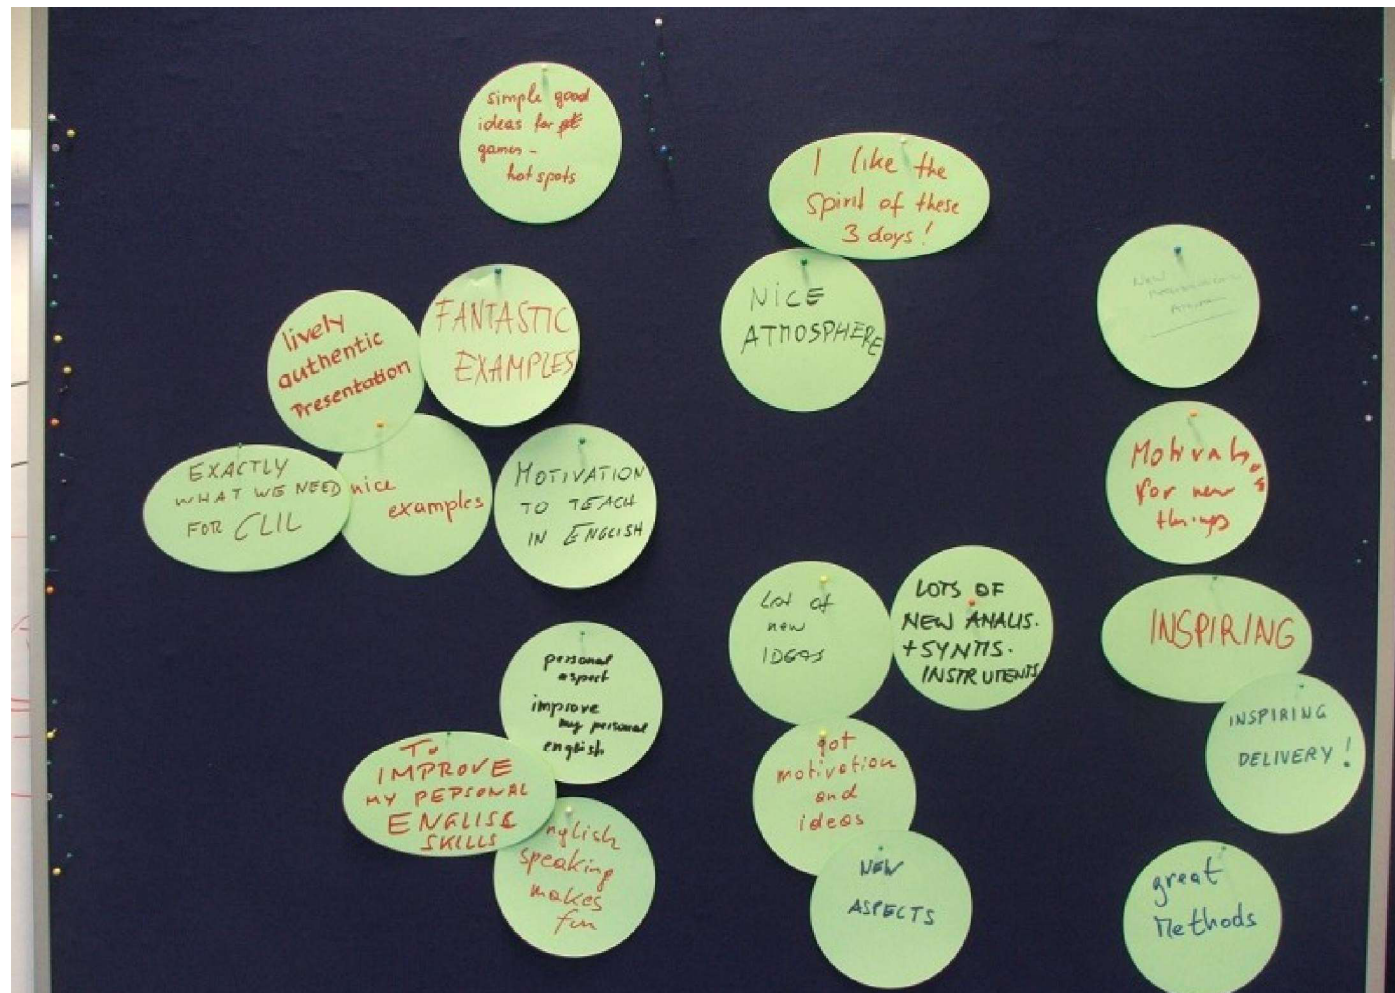 simple good
ideas for
games -
hot spots
I like the
spirit of these
3 days!
NICE
ATMOSPHERE
New
lively
authentic
Presentation
FANTASTIC
EXAMPLES
EXACTLY
WHAT WE NEED
FOR CLIL
nice
examples
MOTIVATION
TO TEACH
IN ENGLISH
Motivation
for new
things
Lot of
new
IDEAS
LOTS OF
NEW ANALIS.
+SYNTIS.
INSTRUMENTS
INSPIRING
INSPIRING
DELIVERY!
personal
aspect
improve
my personal
english
To
IMPROVE
MY PERSONAL
ENGLISC
SKILLS
nglish
speaking
makes
fun
got
motivation
and
ideas
NEW
ASPECTS
great
Methods